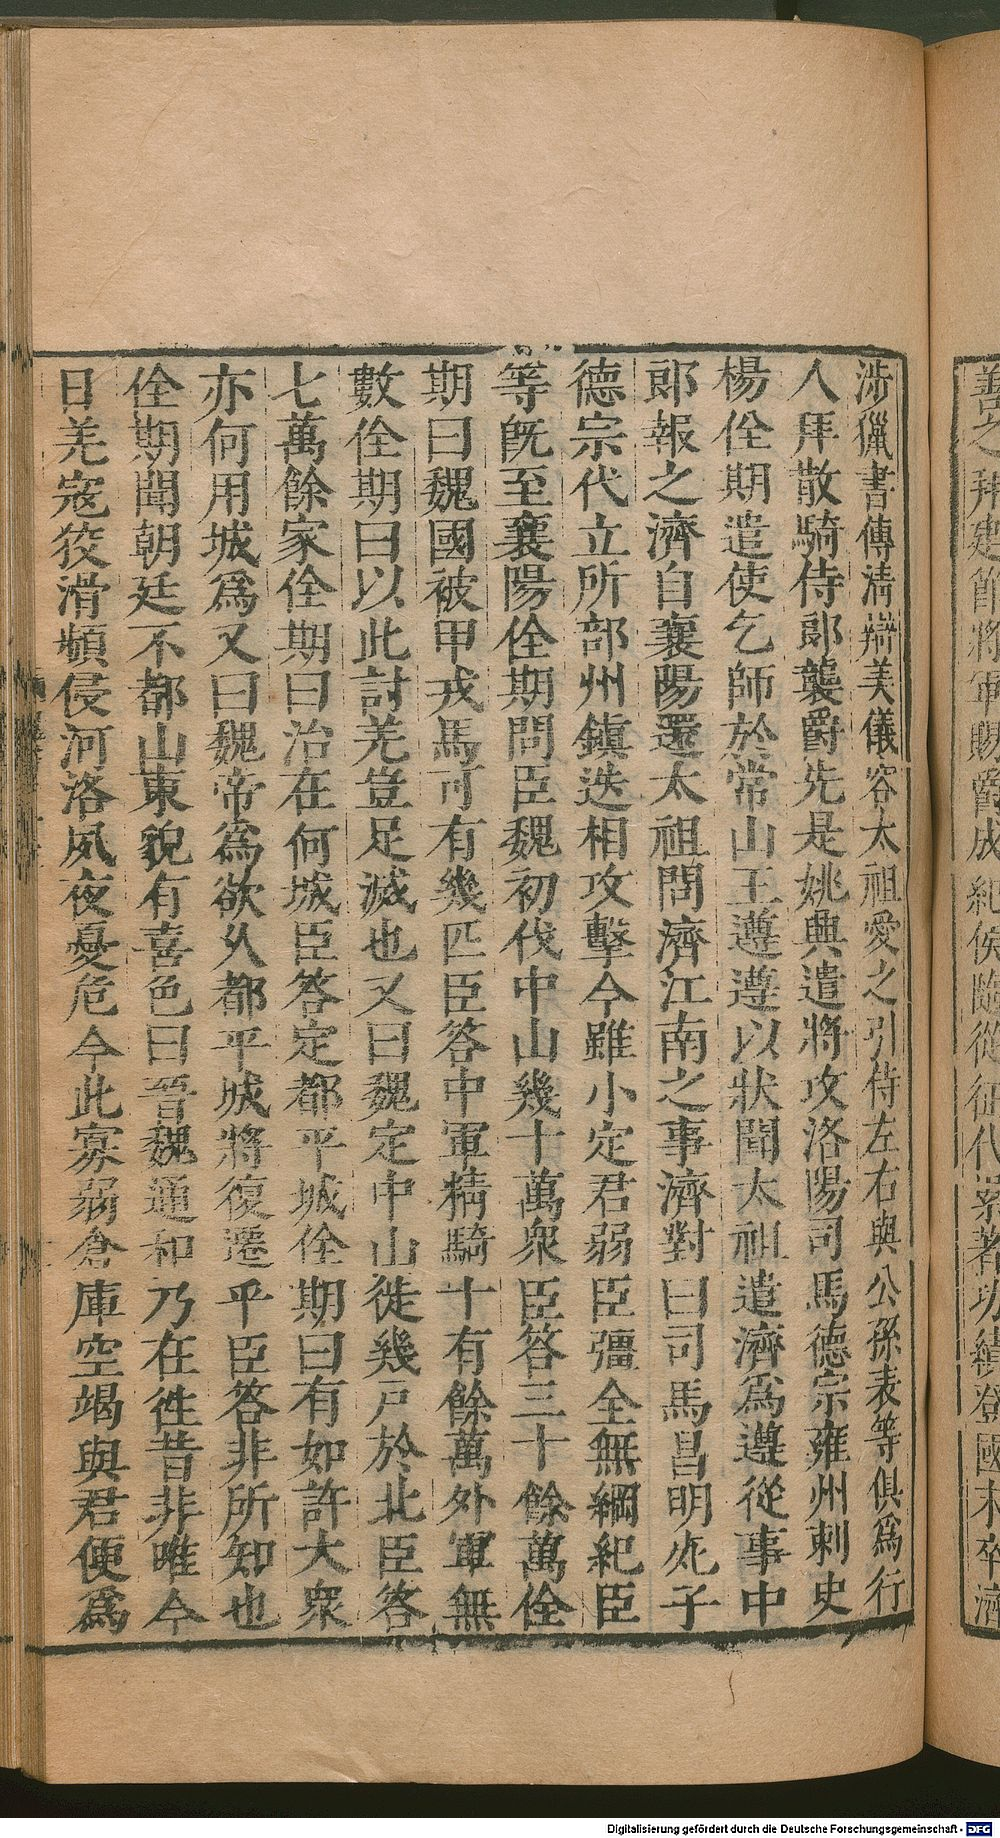 善之拜建節將軍賜爵成紀侯隨從征伐累著功績登國末卒濟
涉獵書傳淸辯美儀容太祖愛之引侍左右與公孫表等俱爲行
人拜散騎侍郞襲爵先是姚興遣將攻洛陽司馬德宗雍州刺史
楊佺期遣使乞師於常山王遵遵以狀聞太祖遣濟爲遵從事中
郞報之濟自襄陽還太祖問濟江南之事濟對曰司馬昌明死子
德宗代立所部州鎭迭相攻擊今雖小定君弱臣彊全無綱紀臣
等旣至襄陽佺期問臣魏初伐中山幾十萬衆臣答三十餘萬佺
期曰魏國被甲戎馬可有幾匹臣答中軍精騎十有餘萬外軍無
數佺期曰以此討羌豈足滅也又曰魏定中山徙幾戸於北臣答
七萬餘家佺期曰治在何城臣答定都平城佺期曰有如許大衆
亦何用城爲又曰魏帝爲欲久都平城將復遷乎臣答非所知也
佺期聞朝廷不都山東貌有喜色曰晉魏通和乃在徃昔非唯今
日羌寇狡滑頻侵河洛夙夜憂危今此寡弱倉庫空竭與君便爲
Digitalisierung gefördert durch die Deutsche Forschungsgemeinschaft - DFG